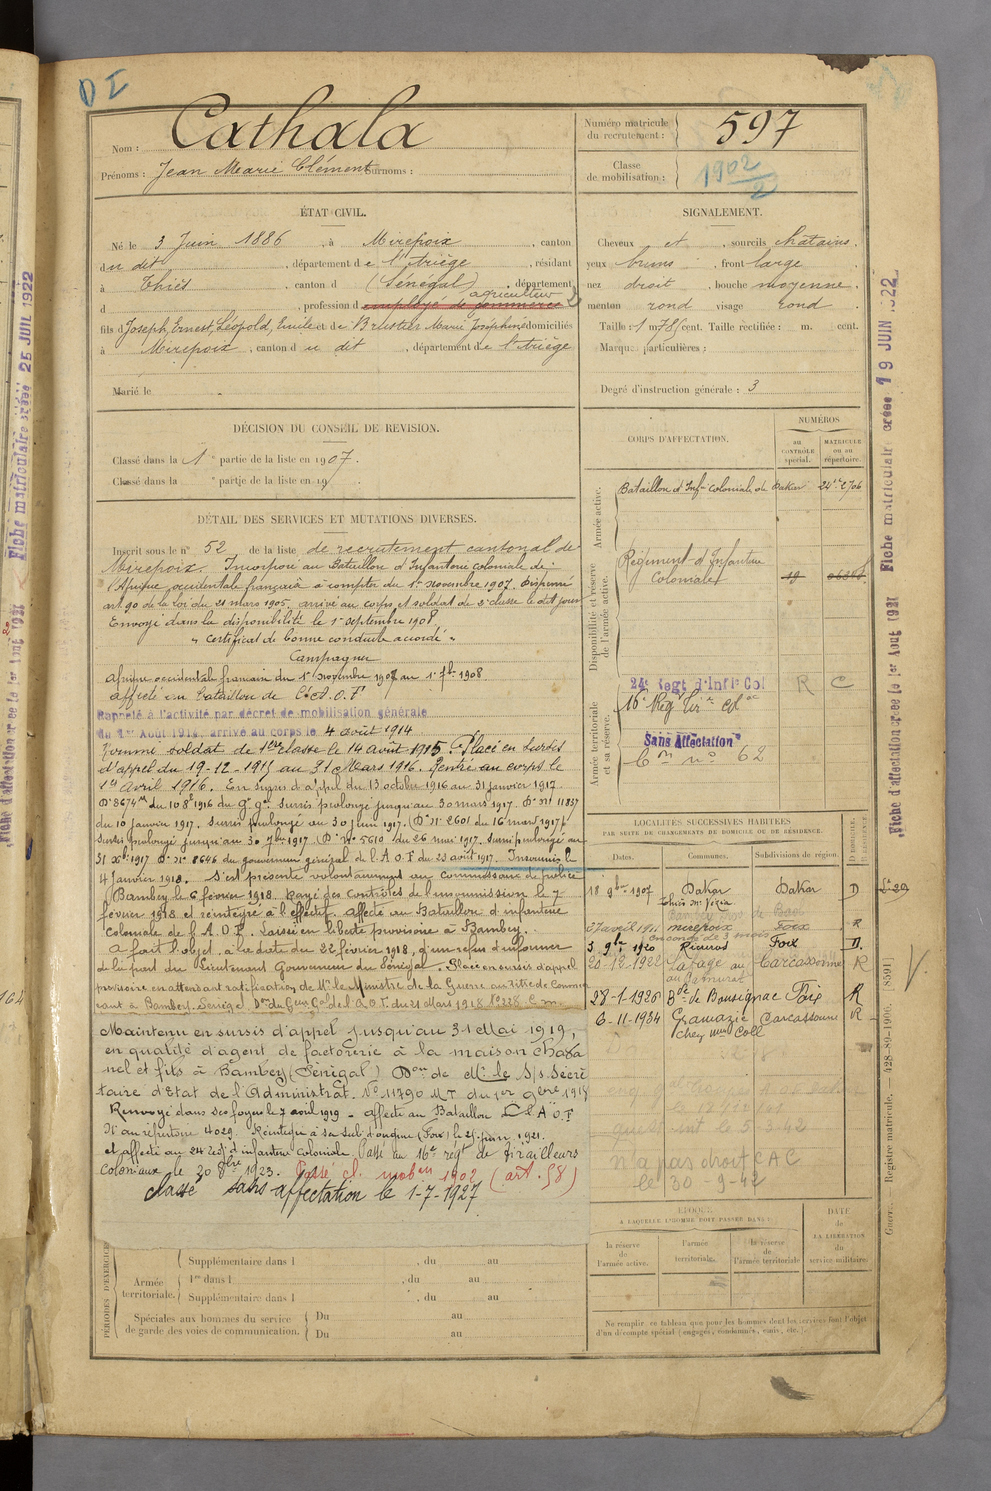 D I
Nom : Cathala
Prénoms : Jean Marie Clément Surnoms :
Numéro matricule du recrutement : 597
Classe de mobilisation : 1902/2
ÉTAT CIVIL.
Né le 3 Juin 1886, à Mirepoix, canton
du dit, département de l'Ariège, résidant
à Thiès, canton d (Sénégal), département
d, profession d employé de commerce agriculteur
fils d Joseph, Ernest, Léopold, Emile et de Brustier Marie Joséphine domiciliés
à Mirepoix, canton du dit, département de l'Ariège
Marié le
SIGNALEMENT.
Cheveux et, sourcils chatains,
yeux bruns, front large
nez droit, bouche moyenne,
menton rond visage rond
Taille : 1 m 78 cent. Taille rectifiée : m. cent.
Marques particulières :
Degré d'instruction générale : 3
DÉCISION DU CONSEIL DE REVISION.
Classé dans la 1e partie de la liste en 1907.
Classé dans la e partie de la liste en 19
DÉTAIL DES SERVICES ET MUTATIONS DIVERSES.
Inscrit sous le n° 52 de la liste de recrutement cantonal de
Mirepoix. Incorporé au Bataillon d'Infanterie coloniale de
l'Afrique occidentale française à compter du 1er novembre 1907. Dispensé
art 90 de la loi du 21 mars 1905. arrivé au corps et soldat de 2e classe le dit jour
Envoyé dans la disponibilité le 1er septembre 1908
" certificat de bonne conduite accordé "
Campagne
Afrique occidentale française du 1er novembre 1907 au 1er 7bre 1908
affecté au Bataillon de l'A.O.F
Rappelé à l'activité par décret de mobilisation générale
du 1er Août 1914, arrivé au corps le 4 août 1914
Nommé soldat de 1ère classe le 14 Août 1915. Placé en sursis
d'appel du 19-12-1915 au 31 Mars 1916. Rentré au corps le
1er Avril 1916. En sursis d'appel du 13 octobre 1916 au 31 janvier 1917.
sursis prolongé jusqu'au 30 mars 1917. Don n° 11837
du 10 janvier 1917. Sursis prolongé au 30 juin 1917. (Don n° 2601 du 16 mars 1917)
Sursis prolongé jusqu'au 30 7bre 1917 (Don n° 5610 du 26 mai 1917. Sursis prolongé au
31 Xbre 1917 Don n° 8646 du gouverneur général de l'A.O.F du 23 août 1917. Insoumis le
4 Janvier 1918. S'est présenté volontairement au commissaire de police
Bambey le 6 février 1918. Rayé des contrôles de l'insoumission le 7
février 1918 et réintégré à l'effectif. affecté au Bataillon d'infanterie
Coloniale de l'A.O.F. Laissé en liberté provisoire à Bambey.
A fait l'objet, à la date du 22 février 1918, d'un refus d'informer
de la part du Lieutenant Gouverneur du Sénégal. Placé en sursis d'appel
provisoire en attendant ratification de Mr le Ministre de la Guerre au titre de Commer
çant à Bambey Sénégal. Don du Gouv Gal de l'A.O.F. du 21 Mars 1918
Maintenu en sursis d'appel jusqu'au 31 Mai 1919,
en qualité d'agent de factorerie à la maison Chava
nel et fils à Bambey (Sénégal) Don de Mr le S/s Secré
taire d'Etat de l'Administrat. No 11790 du 1er 1918
Renvoyé dans ses foyers le 7 avril 1919 - affecté au Bataillon de l'A.O.F
N° au répertoire 4029. Réintégré à sa sub. d'origine (Foix) le 25 juin 1921.
et affecté au 24 Régt d'infanterie Coloniale. Passé au 16e régt de Tirailleurs
Coloniaux le 20 8bre 1923. Passé cl. mobon 1902 (art. 58)
classé sans affectation le 1-7-1927
CORPS D'AFFECTATION.
NUMÉROS
au CONTRÔLE spécial.
MATRICULE ou au répertoire.
Armée active.
Bataillon d'Infie coloniale de Dakar 2706
Disponibilité et réserve de l'armée active.
Régiment d'Infanterie Coloniale
Armée territoriale et sa réserve.
24e Regt d'Infie Col R C
16e Regt Tir
Sans Affectation
Con n° 62
LOCALITÉS SUCCESSIVES HABITÉES
PAR SUITE DE CHANGEMENTS DE DOMICILE OU DE RÉSIDENCE.
Dates. Communes. Subdivisions de région. D DOMICILE. R RÉSIDENCE.
18 9bre 1907 Dakar Dakar D
Mirepoix Foix R
3 9bre 1920 Foix D.
20-12-1922 Carcassonne R
28-1-1926 Bde de Bousignac Foix R
6-11-1934 Gramazie Carcassonne R
chez Mme Coll
le 5-3-42
n'a pas droit C A C
le 30-9-42
ÉPOQUE
À LAQUELLE L'HOMME DOIT PASSER DANS :
la réserve de l'armée active.
l'armée territoriale.
la réserve de l'armée territoriale.
DATE de LA LIBÉRATION du service militaire.
Ne remplir ce tableau que pour les hommes dont les services font l'objet
d'un décompte spécial (engagés, condamnés, omis, etc.).
PÉRIODES D'EXERCICES
Armée territoriale.
Supplémentaire dans l , du au
1re dans l , du au
Supplémentaire dans l , du au
Spéciales aux hommes du service
de garde des voies de communication.
Du au
Du au
Fiche matriculaire créée 19 JUIN 1922
Fiche d'affectation créée le 1er Août 1921
Guerre. — Registre matricule. — 428-89-1906. [5891]
Fiche matriculaire créée 25 JUIL 1922
Fiche d'affectation créée le 1er Août 1921